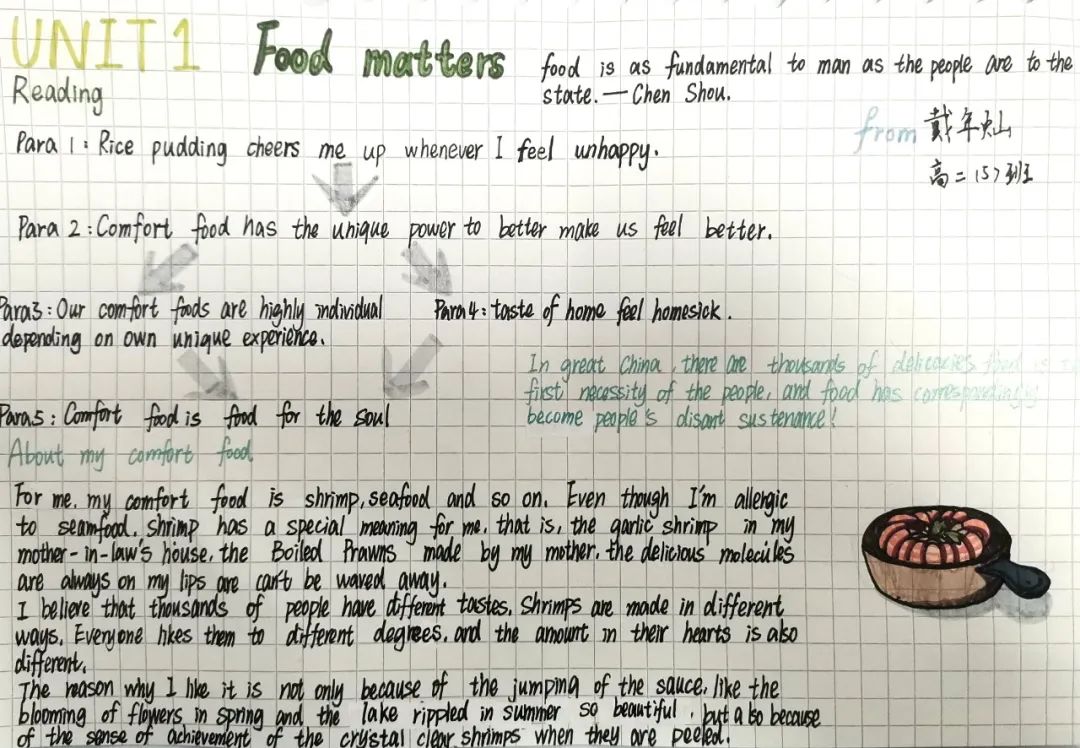 UNIT 1 Food matters
food is as fundamental to man as the people are to the
state. — Chen Shou.
Reading
from 戴年灿
高二(5)班
Para 1: Rice pudding cheers me up whenever I feel unhappy.
Para 2: Comfort food has the unique power to better make us feel better.
Para3: Our comfort foods are highly individual
depending on own unique experience.
Para4: taste of home feel homesick.
In great China, there are thousands of delicacies, food is
first necessity of the people, and food has correspondingly
become people's disant sustenance!
Para5: Comfort food is food for the soul
About my comfort food
For me, my comfort food is shrimp, seafood and so on. Even though I'm allergic
to seamfood, shrimp has a special meaning for me, that is, the garlic shrimp in my
mother-in-law's house, the Boiled Prawns made by my mother, the delicious molecules
are always on my lips are can't be waved away.
I believe that thousands of people have different tastes, Shrimps are made in different
ways, Everyone likes them to different degrees, and the amount in their hearts is also
different.
The reason why I like it is not only because of the jumping of the sauce, like the
blooming of flowers in spring and the lake rippled in summer so beautiful, but also because
of the sense of achievement of the crystal clear shrimps when they are peeled.